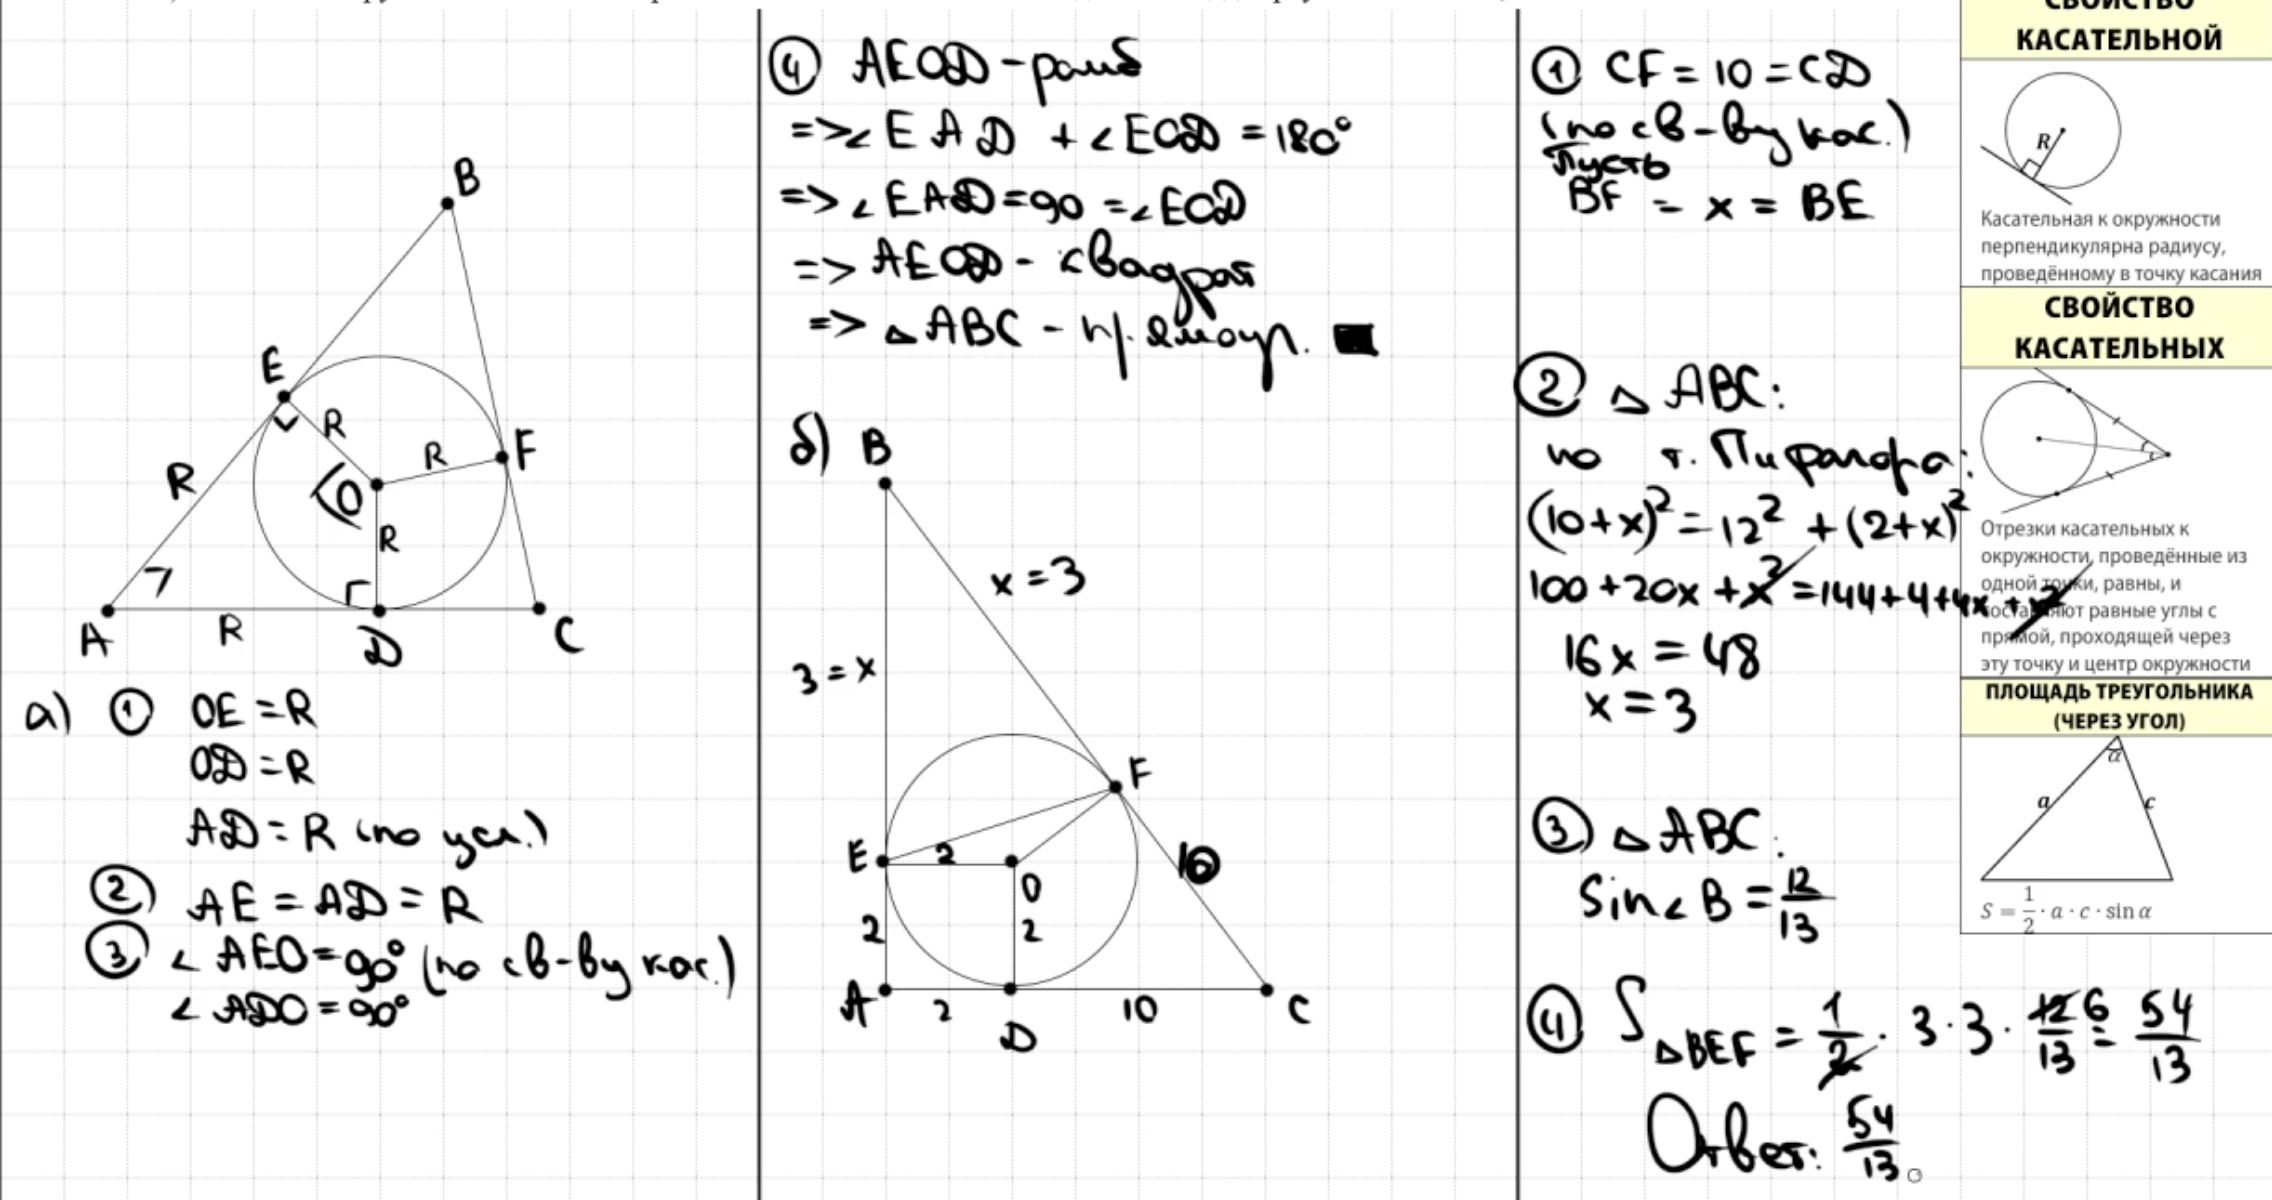 B
E
R
F
R
R
O
R
A
R
D
C
а) ① OE = R
OD = R
AD = R (по усл.)
② AE = AD = R
③ ∠AEO = 90° (по св-ву кас.)
∠ADO = 90°
④ AEOD - ромб
=> ∠EAD + ∠EOD = 180°
=> ∠EAD = 90 = ∠EOD
=> AEOD - квадрат
=> △ABC - прямоуг.
б) B
x = 3
3 = x
F
E 2
O
10
2
2
A 2 10 C
D
① CF = 10 = CD
(по св-ву кас.)
Пусть
BF = x = BE
② △ABC:
по т. Пифагора:
(10+x)² = 12² + (2+x)²
100 + 20x + x² = 144 + 4 + 4x + x²
16x = 48
x = 3
③ △ABC:
Sin∠B = 12/13
④ S△BEF = 1/2 · 3 · 3 · 12/13 6 = 54/13
Ответ: 54/13.
СВОЙСТВО
КАСАТЕЛЬНОЙ
R
Касательная к окружности
перпендикулярна радиусу,
проведённому в точку касания
СВОЙСТВО
КАСАТЕЛЬНЫХ
Отрезки касательных к
окружности, проведённые из
одной точки, равны, и
составляют равные углы с
прямой, проходящей через
эту точку и центр окружности
ПЛОЩАДЬ ТРЕУГОЛЬНИКА
(ЧЕРЕЗ УГОЛ)
α
a c
S = 1/2 · a · c · sin α